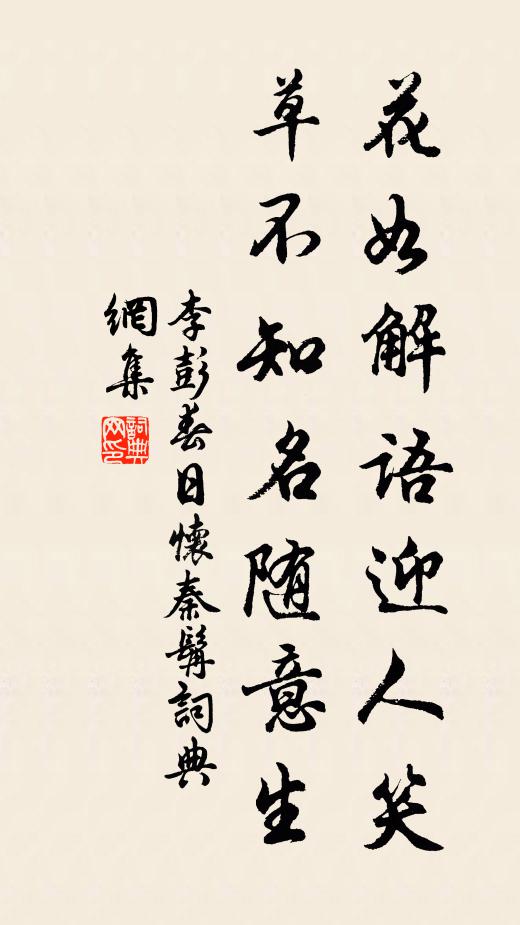 花如解語迎人笑
草不知名随意生
李彭春日懷秦髯詞典
網集
詞典
网印